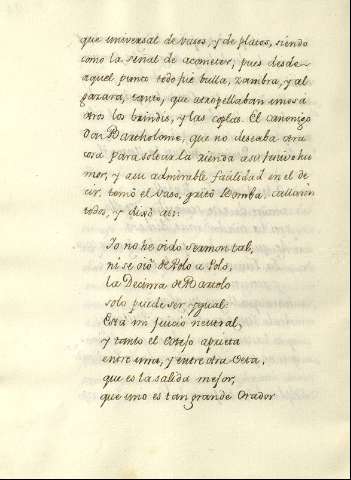 que universal de vasos, y de platos, siendo
como la señal de acometer, pues desde
aquel punto todo fue bulla, zambra, y al
gazara, tanto, que atropellaban unos á
otros los brindis, y las coplas. El canonigo
Don Bartholome, que no deseaba otra
cosa para soltar la rienda a su festivo hu
mor, y a su admirable facilidad en el de
cir, tomò el vaso, gritò bomba, callaron
todos, y dixo asi:
Io no he oido sermon tal,
ni se oiò de Polo a Polo,
la Decima de Bartolo
solo puede ser ygual:
Está mi juicio neutral,
y tanto el cotejo aprieta
entre una, y entre otra
que es la salida mejor,
que uno es tan grande Orador